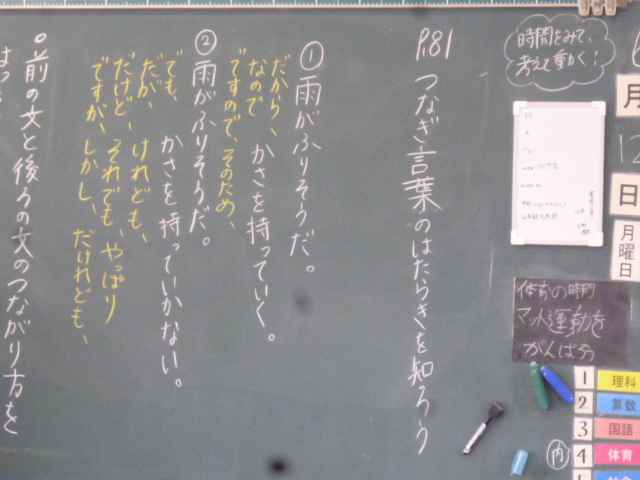 時間をみて、
考えて動く!
月
12
日
月曜日
体育の時間
マット運動を
がんばろう
1 理科
2 算数
3 国語
4 体育
内
P.81 つなぎ言葉のはたらきを知ろう
① 雨がふりそうだ。
だから、かさを持っていく。
なので
ですので、そのため、
② 雨がふりそうだ。
でも、かさを持っていかない。
だが、けれども、
だけど、それでも、やっぱり
ですが、しかし、だけれども、
○前の文と後ろの文のつながり方を